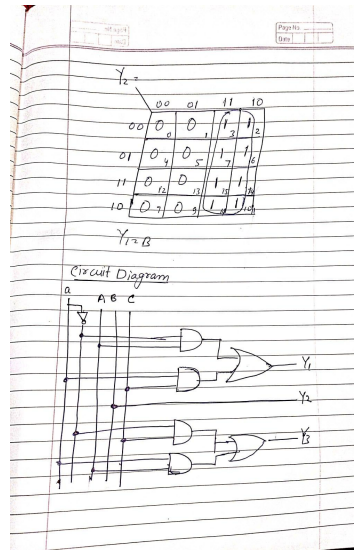 Page No.
Date
Y2 =
00 01 11 10
00 0 0 0 1 1 3 1 2
01 0 4 0 5 1 7 1 6
11 0 12 0 13 1 15 1 14
10 0 0 9 1 1 10
Y1=B
Circuit Diagram
a A B C
Y1
Y2
Y3